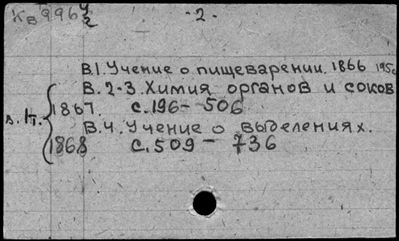 Кв 996 4/2 - 2 -
В.1. Учение о пищеварении. 1866
В. 2-3. Химия органов и соков
в. 1т. 1867. с. 196- 506
В.4. Учение о выделениях.
1868 с. 509- 736